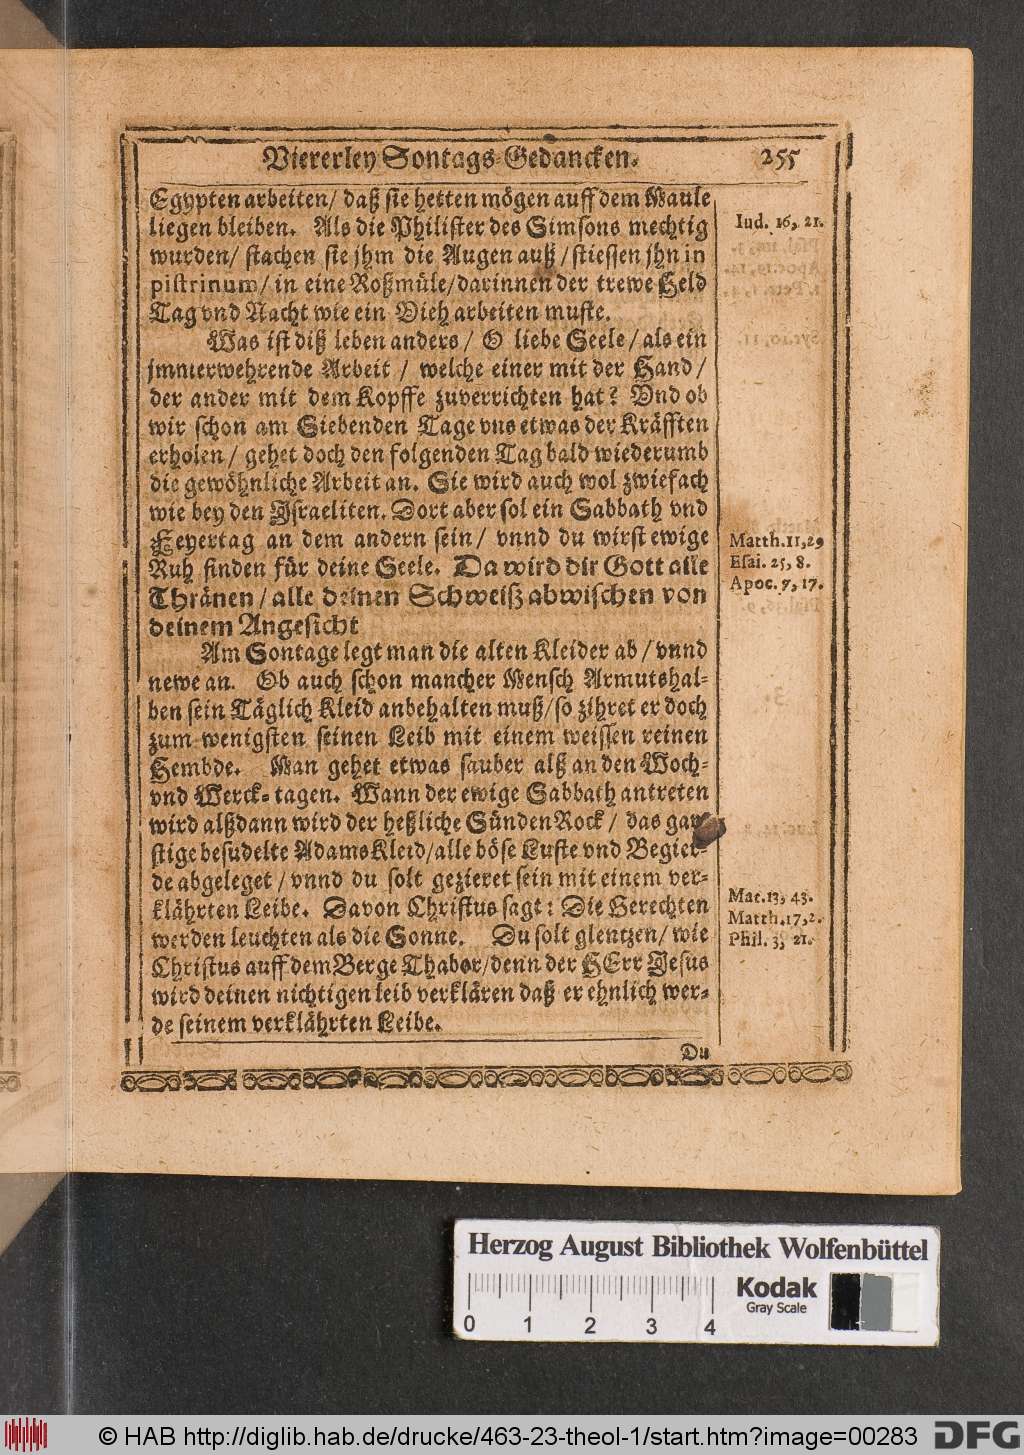 Viererley Sontags-Gedancken. 255
Egypten arbeiten/ daß sie hetten mögen auff dem Maule
liegen bleiben. Als die Philister des Simsons mechtig
wurden/ stachen sie jhm die Augen auß/ stiessen jhn in
pistrinum/ in eine Roßmüle/ darinnen der trewe Held
Tag vnd Nacht wie ein Vieh arbeiten muste.
Iud. 16, 21.
Was ist diß leben anders/ O liebe Seele/ als ein
jmmerwehrende Arbeit/ welche einer mit der Hand/
der ander mit dem Kopffe zuverrichten hat? Vnd ob
wir schon am Siebenden Tage vns etwas der Kräfften
erholen/ gehet doch den folgenden Tag bald wiederumb
die gewöhnliche Arbeit an. Sie wird auch wol zwiefach
wie bey den Israeliten. Dort aber sol ein Sabbath vnd
Feyertag an dem andern sein/ vnnd du wirst ewige
Ruh finden für deine Seele. Da wird dir Gott alle
Thränen/ alle deinen Schweiß abwischen von
deinem Angesicht
Matth. 11, 29
Esai. 25, 8.
Apoc. 7, 17.
Am Sontage legt man die alten Kleider ab/ vnnd
newe an. Ob auch schon mancher Mensch Armutshal-
ben sein Täglich Kleid anbehalten muß/ so zihret er doch
zum wenigsten seinen Leib mit einem weissen reinen
Hembde. Man gehet etwas sauber alß an den Woch-
vnd Werck-tagen. Wann der ewige Sabbath antreten
wird alßdann wird der heßliche Sünden Rock/ das gar-
stige besudelte Adams Kleid/ alle böse Luste vnd Begier-
de abgeleget/ vnnd du solt gezieret sein mit einem ver-
klährten Leibe. Davon Christus sagt: Die Gerechten
werden leuchten als die Sonne. Du solt glentzen/ wie
Christus auff dem Berge Thabor/ denn der HErr Jesus
wird deinen nichtigen leib verklären daß er ehnlich wer-
de seinem verklährten Leibe.
Mat. 13, 43.
Matth. 17, 2.
Phil. 3, 21.
Du
Herzog August Bibliothek Wolfenbüttel
Kodak
Gray Scale
0 1 2 3 4
© HAB http://diglib.hab.de/drucke/463-23-theol-1/start.htm?image=00283
DFG